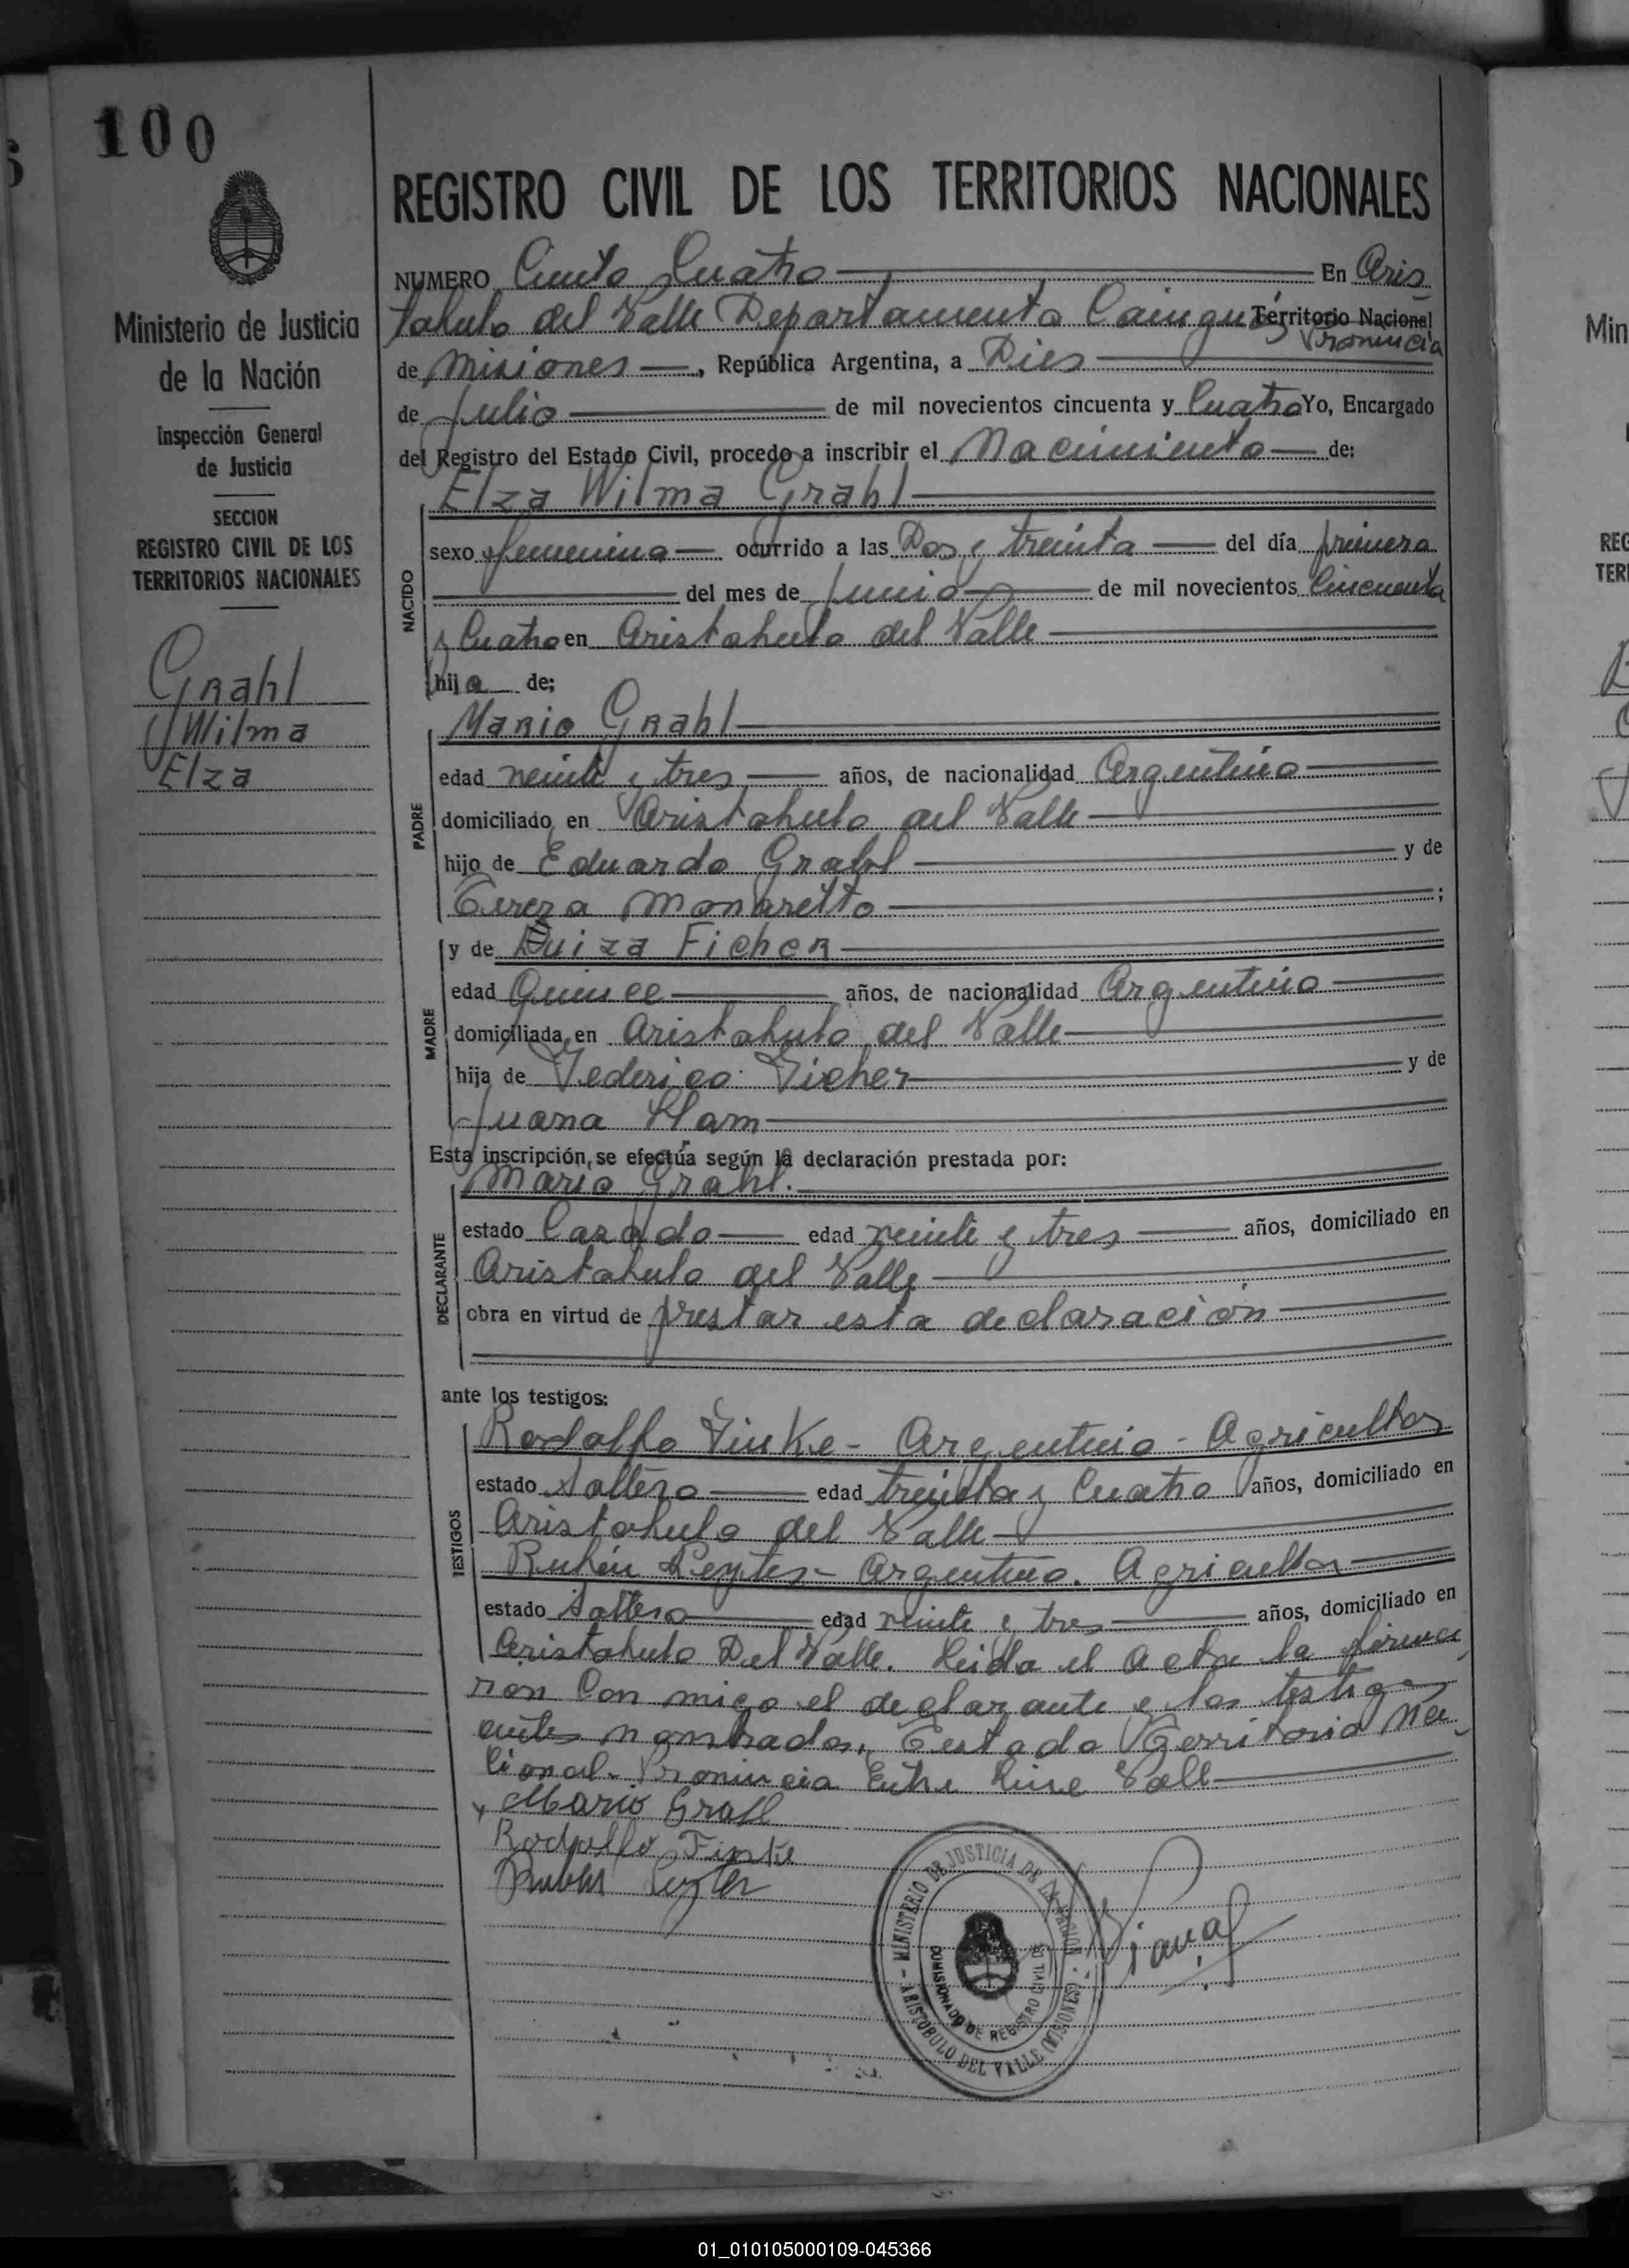 100
Ministerio de Justicia
de la Nación
Inspección General
de Justicia
SECCION
REGISTRO CIVIL DE LOS
TERRITORIOS NACIONALES
Grahl
Wilma
Elza
REGISTRO CIVIL DE LOS TERRITORIOS NACIONALES
NUMERO Ciento Cuatro En Aris
tobulo del Valle Departamento Cainguas Territorio Nacional
Provincia
de Misiones, República Argentina, a Dies
de Julio de mil novecientos cincuenta y Cuatro Yo, Encargado
del Registro del Estado Civil, procedo a inscribir el Nacimiento de:
Elza Wilma Grahl
NACIDO
sexo femenino ocurrido a las Dos y treinta del día primero
del mes de Junio de mil novecientos Cincuenta
y Cuatro en Aristobulo del Valle
hija de;
Mario Grahl
PADRE
edad veinte y tres años, de nacionalidad Argentino
domiciliado en Aristobulo del Valle
hijo de Eduardo Grahl y de
Tereza Monaretto ;
y de Luiza Ficher
MADRE
edad Quince años, de nacionalidad Argentino
domiciliada en Aristobulo del Valle
hija de Federico Ficher y de
Juana
Esta inscripción, se efectúa según la declaración prestada por:
Mario Grahl.
DECLARANTE
estado Casado edad veinte y tres años, domiciliado en
Aristobulo del Valle
obra en virtud de prestar esta declaración
ante los testigos:
TESTIGOS
Rodolfo Finke - Argentino - Agricultor
estado Soltero edad treinta y Cuatro años, domiciliado en
Aristobulo del Valle
Rubén - Argentino. Agricultor
estado Soltero edad veinte y tres años, domiciliado en
Aristobulo Del Valle. Leida el Acta la firma
ron Con migo el declarante y los testigos
antes nombrados. Testado Territorio Na
cional - Provincia Entre linea Vall
x Mario Grahl
Rodolfo Finke
MINISTERIO DE JUSTICIA DE LA NACION
ARISTOBULO DEL VALLE (MISIONES)
COMISIONADO DE REGISTRO CIVIL
Min
REG
TER
01_010105000109-045366